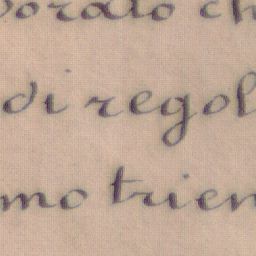 orato ch
di regol
mo trien